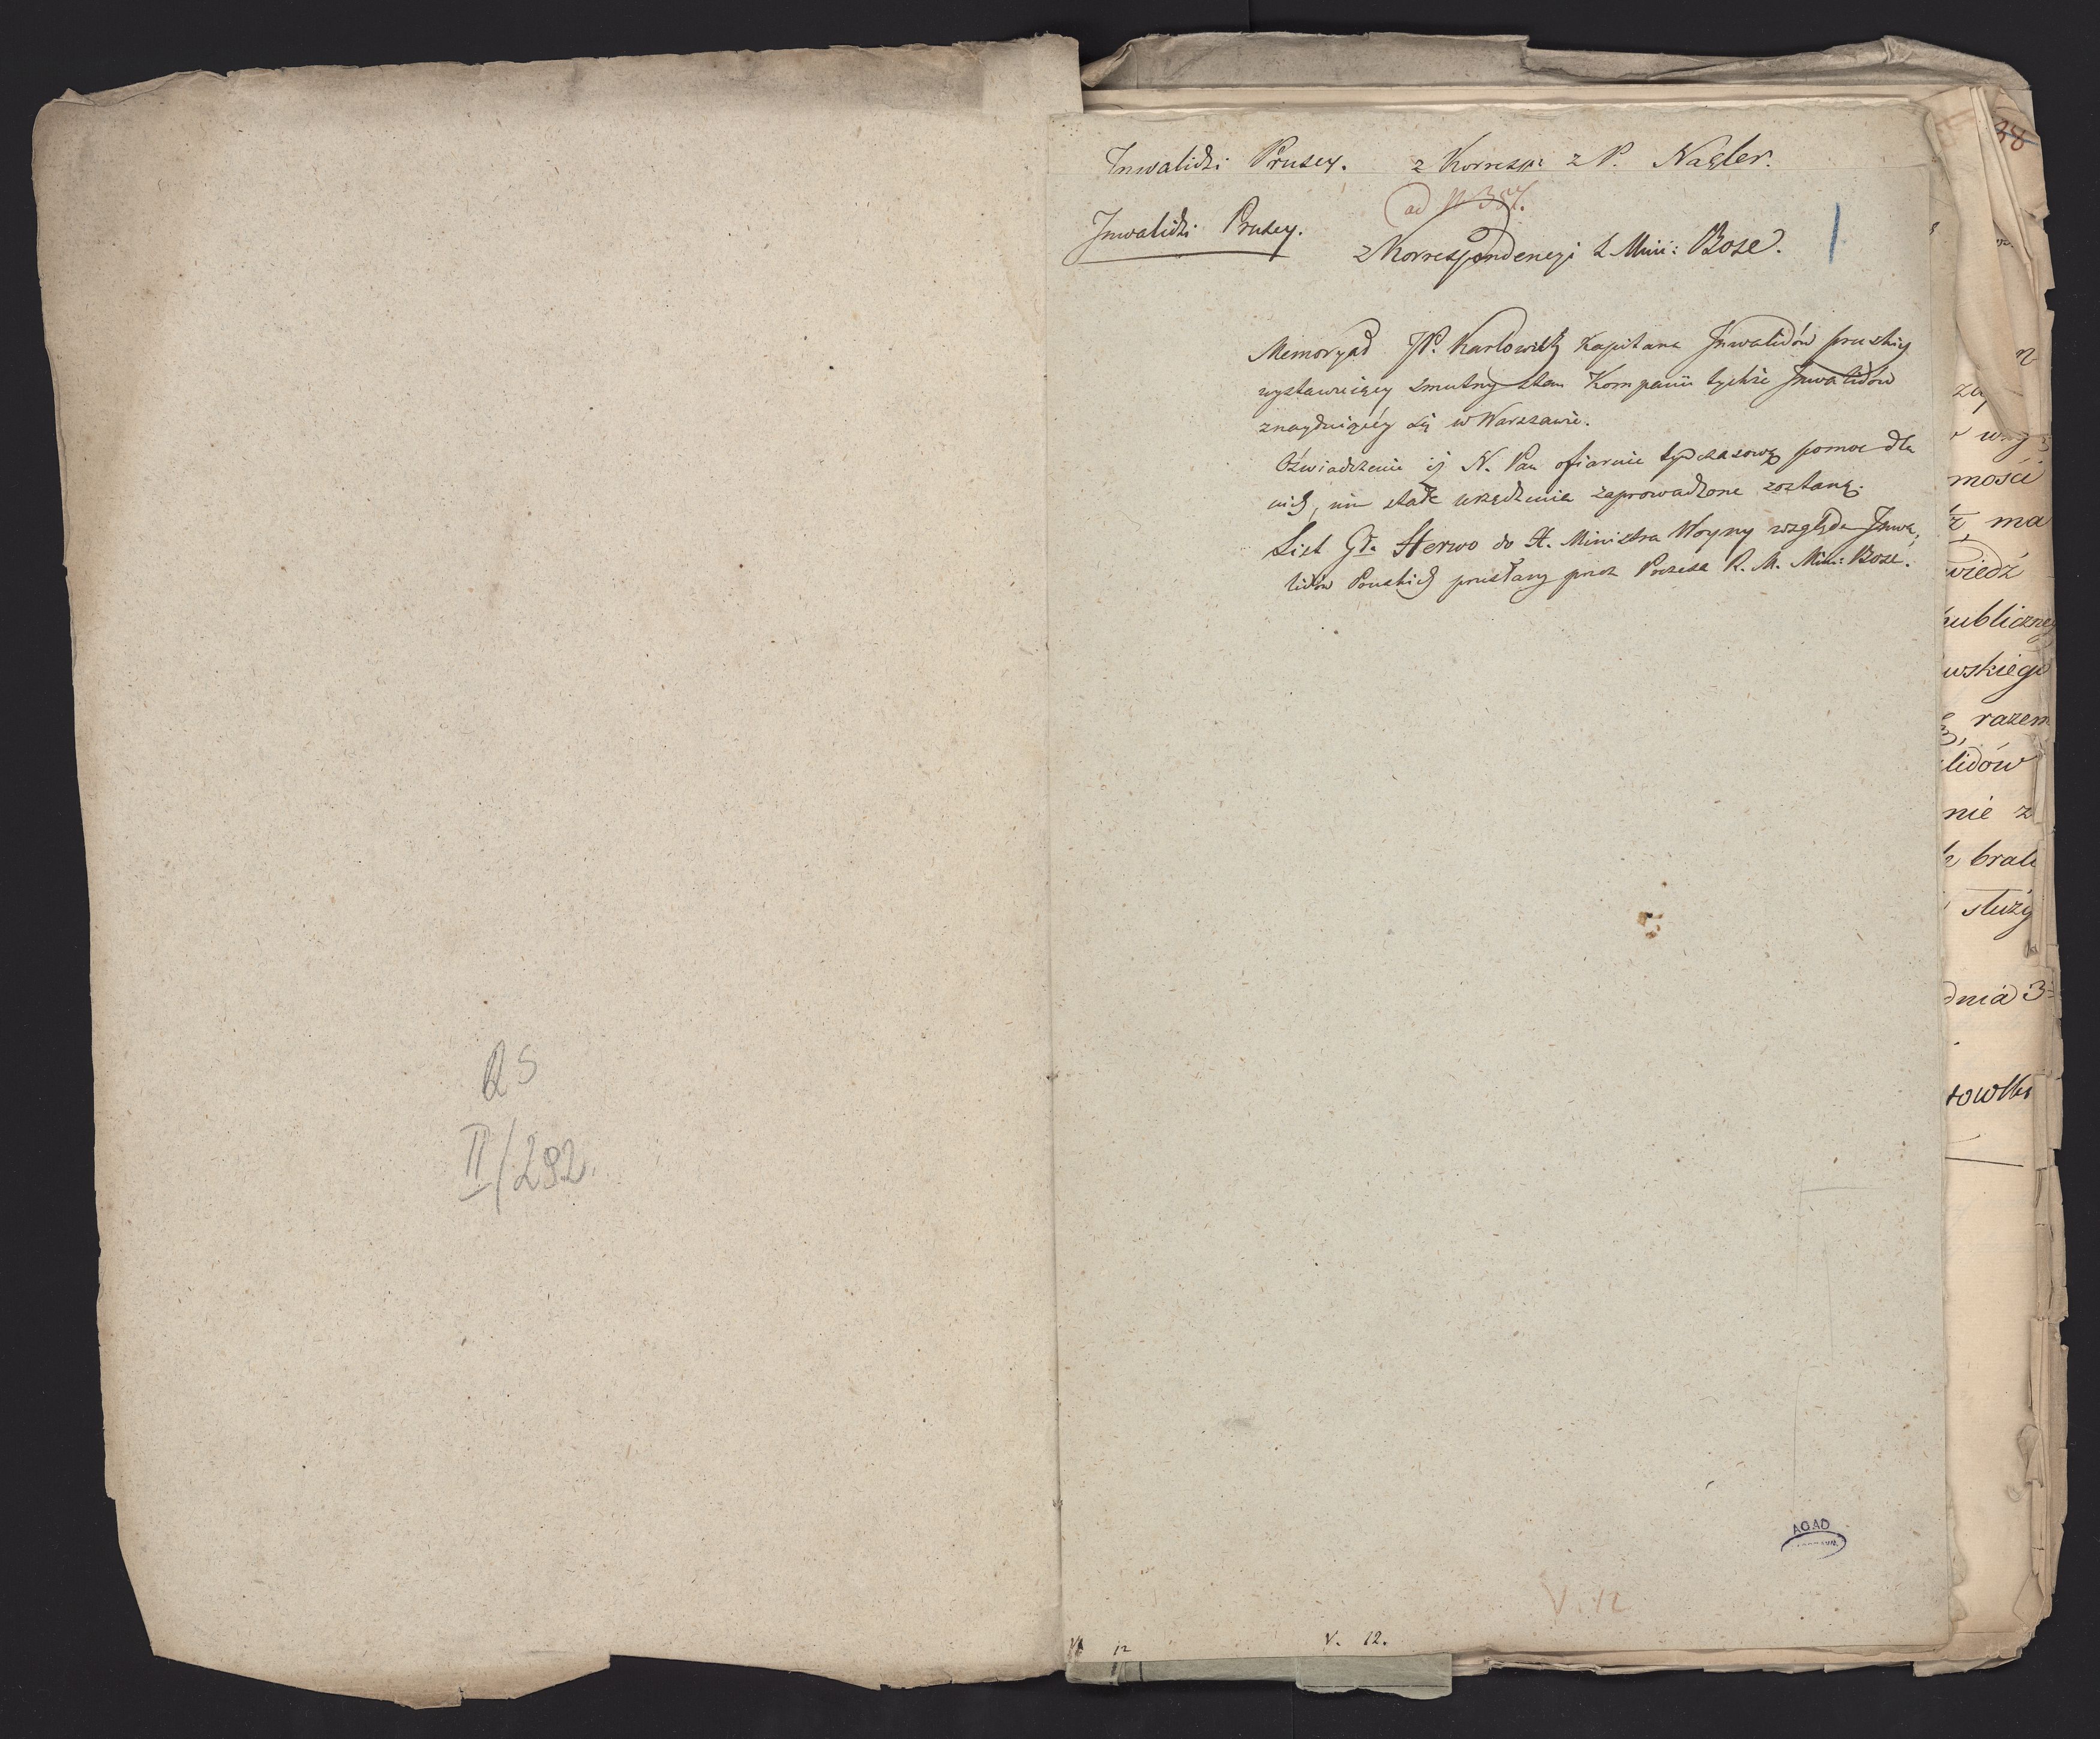 RS
II/282.
Inwalidzi Pruscy. z Korresp: z P. Nagler.
ad N 357.
Inwalidzi Pruscy. 1
z Korrespondencyi z Mini: Bose.
Memoryał JP. Karlowitz Kapitana Inwalidów pruskich
wystawuiący smutny stan Kompanii tychże Inwalidów
znayduiącéy się w Warszawie.
Oświadczenie iż N. Pan ofiaruie tymczasową pomoc dla
nich, nim stałe urządzenia zaprowadzone zostaną.
List Gł. Sterwo do H. Ministra Woyny względem Inwa,
lidów Pruskich przesłany przez Prezesa R. M. Mini: Bose.
AGAD
V. 12
V. 12.
38
mości
ma
wiedź
ublicznej
wskiego
razem
lidów
nie z
brali
służy
dnia 3